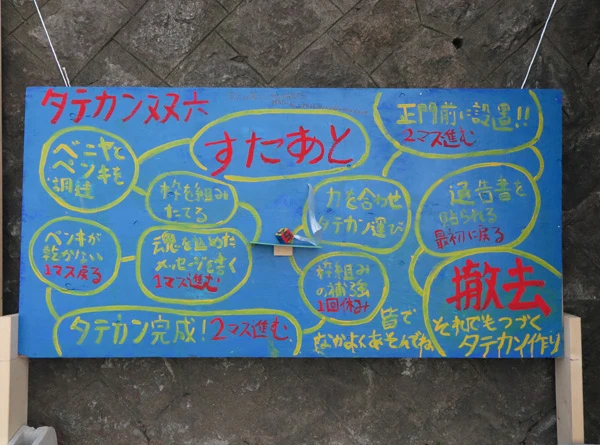 タテカン双六
すたあと
ベニヤと
ペンキを
調達
枠を組み
たてる
ペンキが
乾かない
1マス戻る
魂を込めた
メッセージを書く
1マス進む
タテカン完成!2マス進む
枠組み
の補強
1回休み
力を合わせ
タテカン運び
正門前に設置!!
2マス進む
通告書を
貼られる
最初に戻る
撤去
それでもつづく
タテカン作り
皆で
なかよくあそんでね